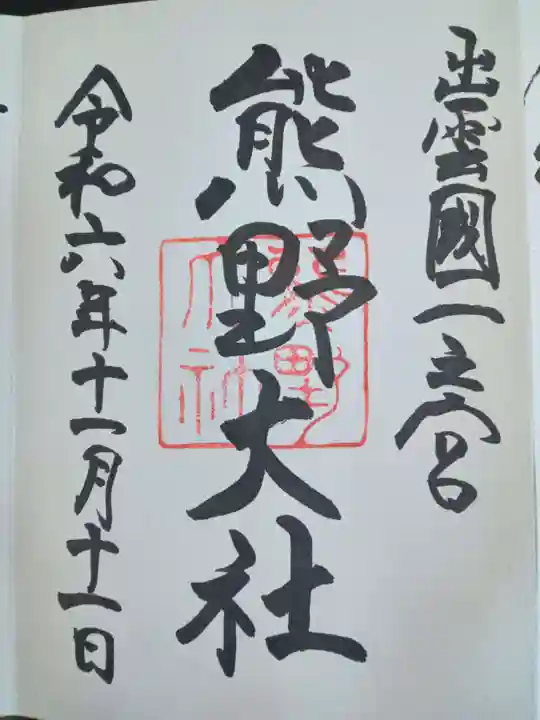 出雲國一之宮
熊野大社
熊野
大社
令和六年十一月十一日